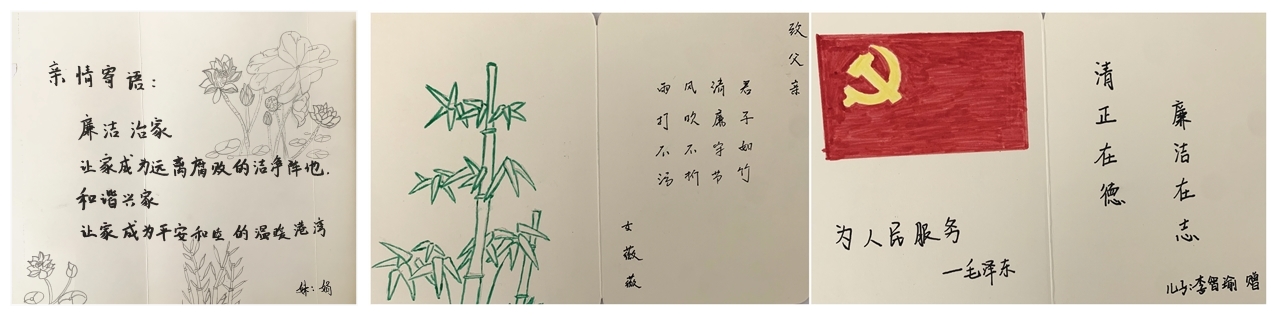 亲情寄语：
廉洁治家
让家成为远离腐败的洁净阵地.
和谐兴家
让家成为平安和应的温暖港湾
妹：娟
致父亲
君子如竹
清廉守节
风吹不折
雨打不污
女薇薇
为人民服务
—毛泽东
廉洁在志
清正在德
儿子：李智瑜 赠